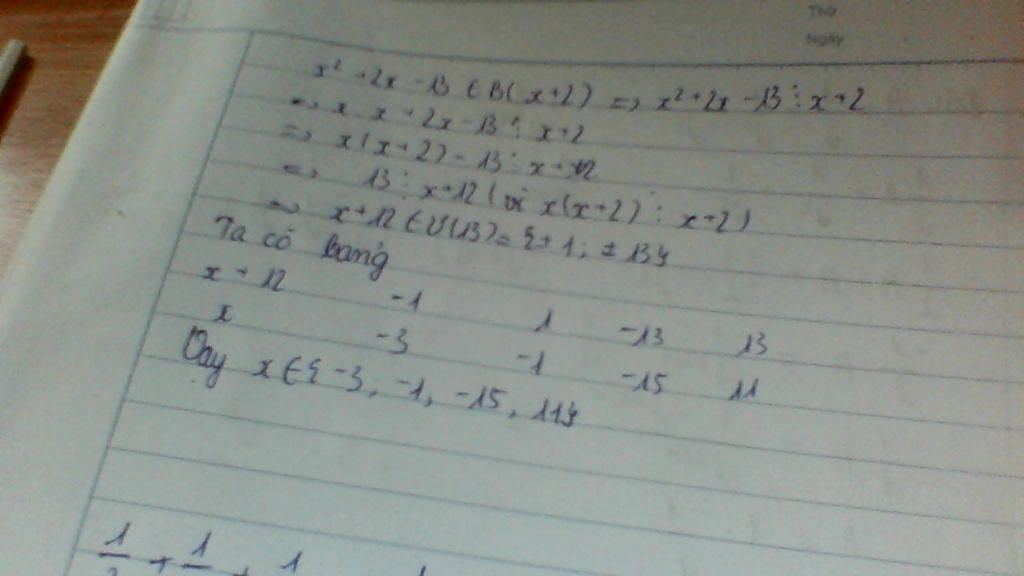 Thứ
Ngày
x² + 2x - 13 ∈ B(x+2) => x² + 2x - 13 ⋮ x+2
=> x . x + 2x - 13 ⋮ x+2
=> x(x+2) - 13 ⋮ x+2
=> 13 ⋮ x+12 (vì x(x+2) ⋮ x+2)
=> x+12 ∈ Ư(13) = {±1; ±13}
Ta có bảng
x + 12 -1 1 -13 13
x -3 -1 -15 11
Vậy x ∈ {-3, -1, -15, 11}
1/ + 1 + 1